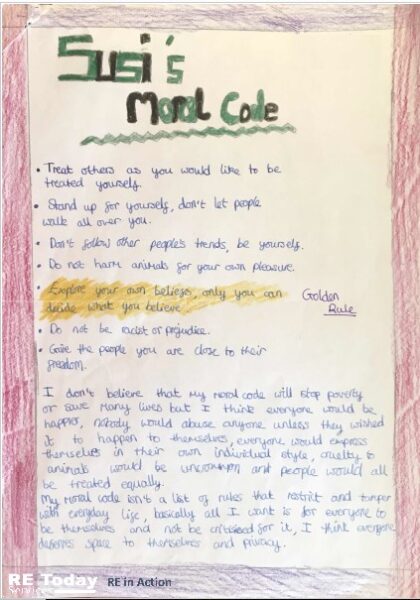 Susi's
Moral Code
• Treat others as you would like to be
treated yourself.
• Stand up for yourself, don't let people
walk all over you.
• Don't follow other people's trends, be yourself.
• Do not harm animals for your own pleasure.
• Explore your own beliefs, only you can
decide what you believe
Golden
Rule
• Do not be racist or prejudice.
• Give the people you are close to their
freedom.
I don't believe that my moral code will stop poverty
or save many lives but I think everyone would be
happier, nobody would abuse anyone unless they wished
it to happen to themselves, everyone would express
themselves in their own individual style, cruelty to
animals would be uncommon and people would all
be treated equally.
My moral code isn't a list of rules that restrict and tamper
with everyday life, basically all I want is for everyone to
be themselves and not be criticised for it, I think everyone
deserves space to themselves and privacy.
RE Today
Services
RE in Action